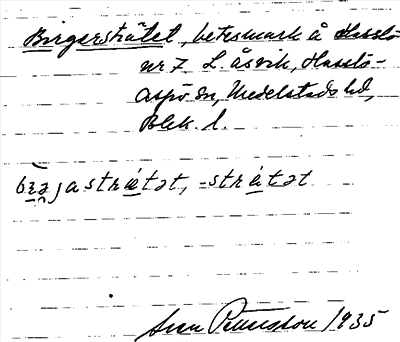 Birgersträtet, betesmark å Hasslö
nr 7 L. åsvik, Hasslö-
aspö sn, Medelstads hd,
Blek. l.
bərjastrætət, -strætət
Sven Petersson 1935